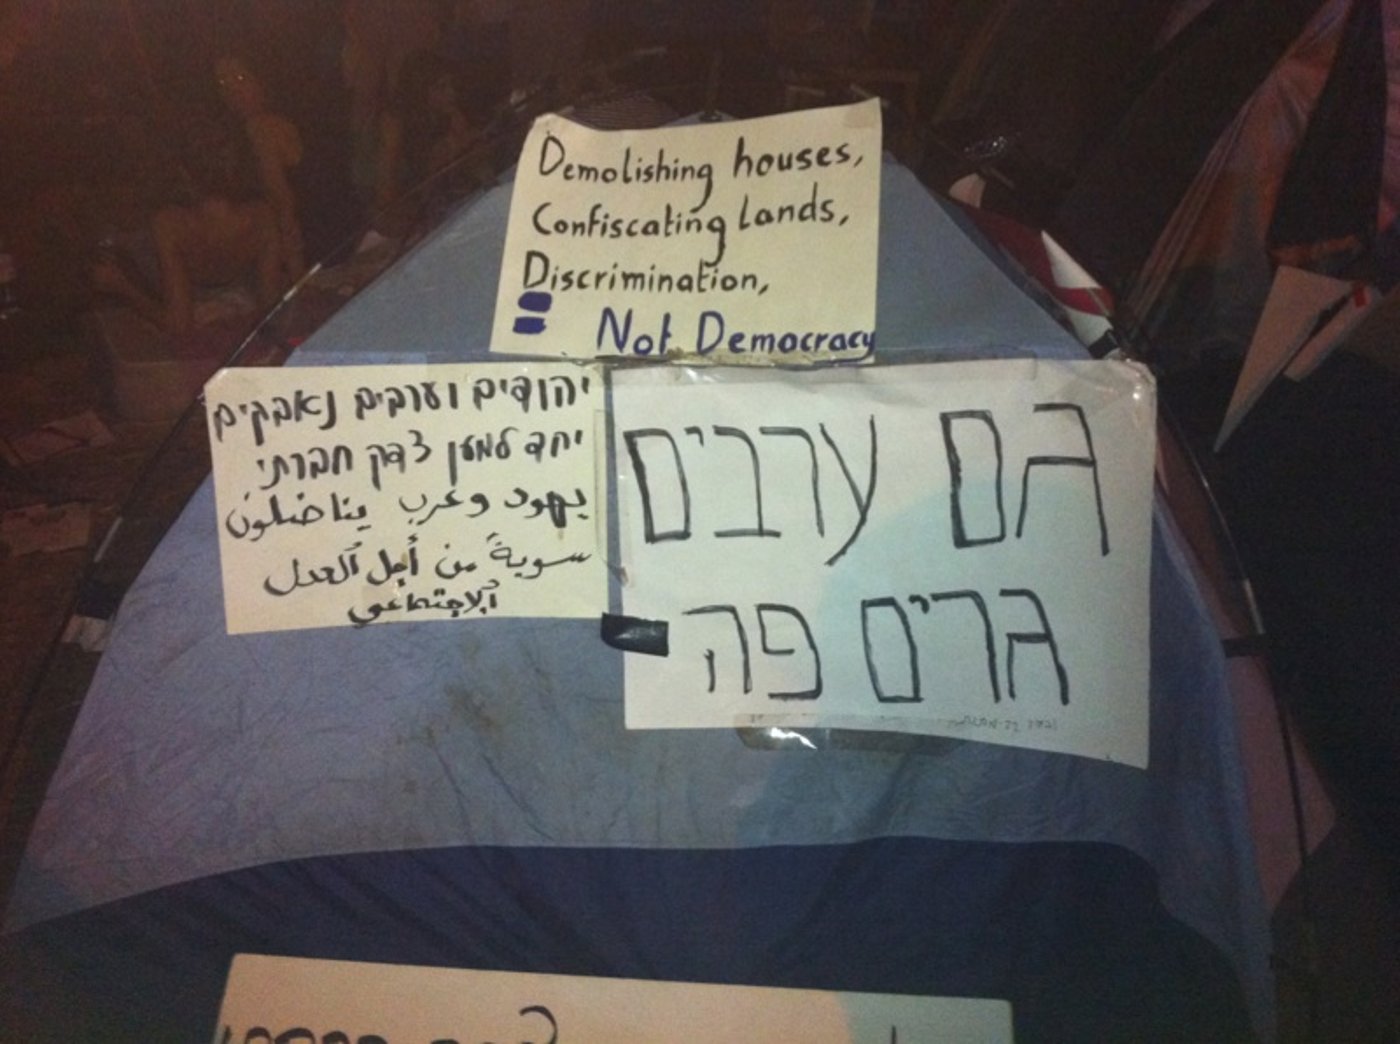 Demolishing houses,
Confiscating lands,
Discrimination,
= Not Democracy
יהודים וערבים נאבקים
יחד למען צדק חברתי
يهود وعرب يناضلون
سويةً من أجل ٱلعدل
ٱلاجتماعي
גם ערבים
גרים פה